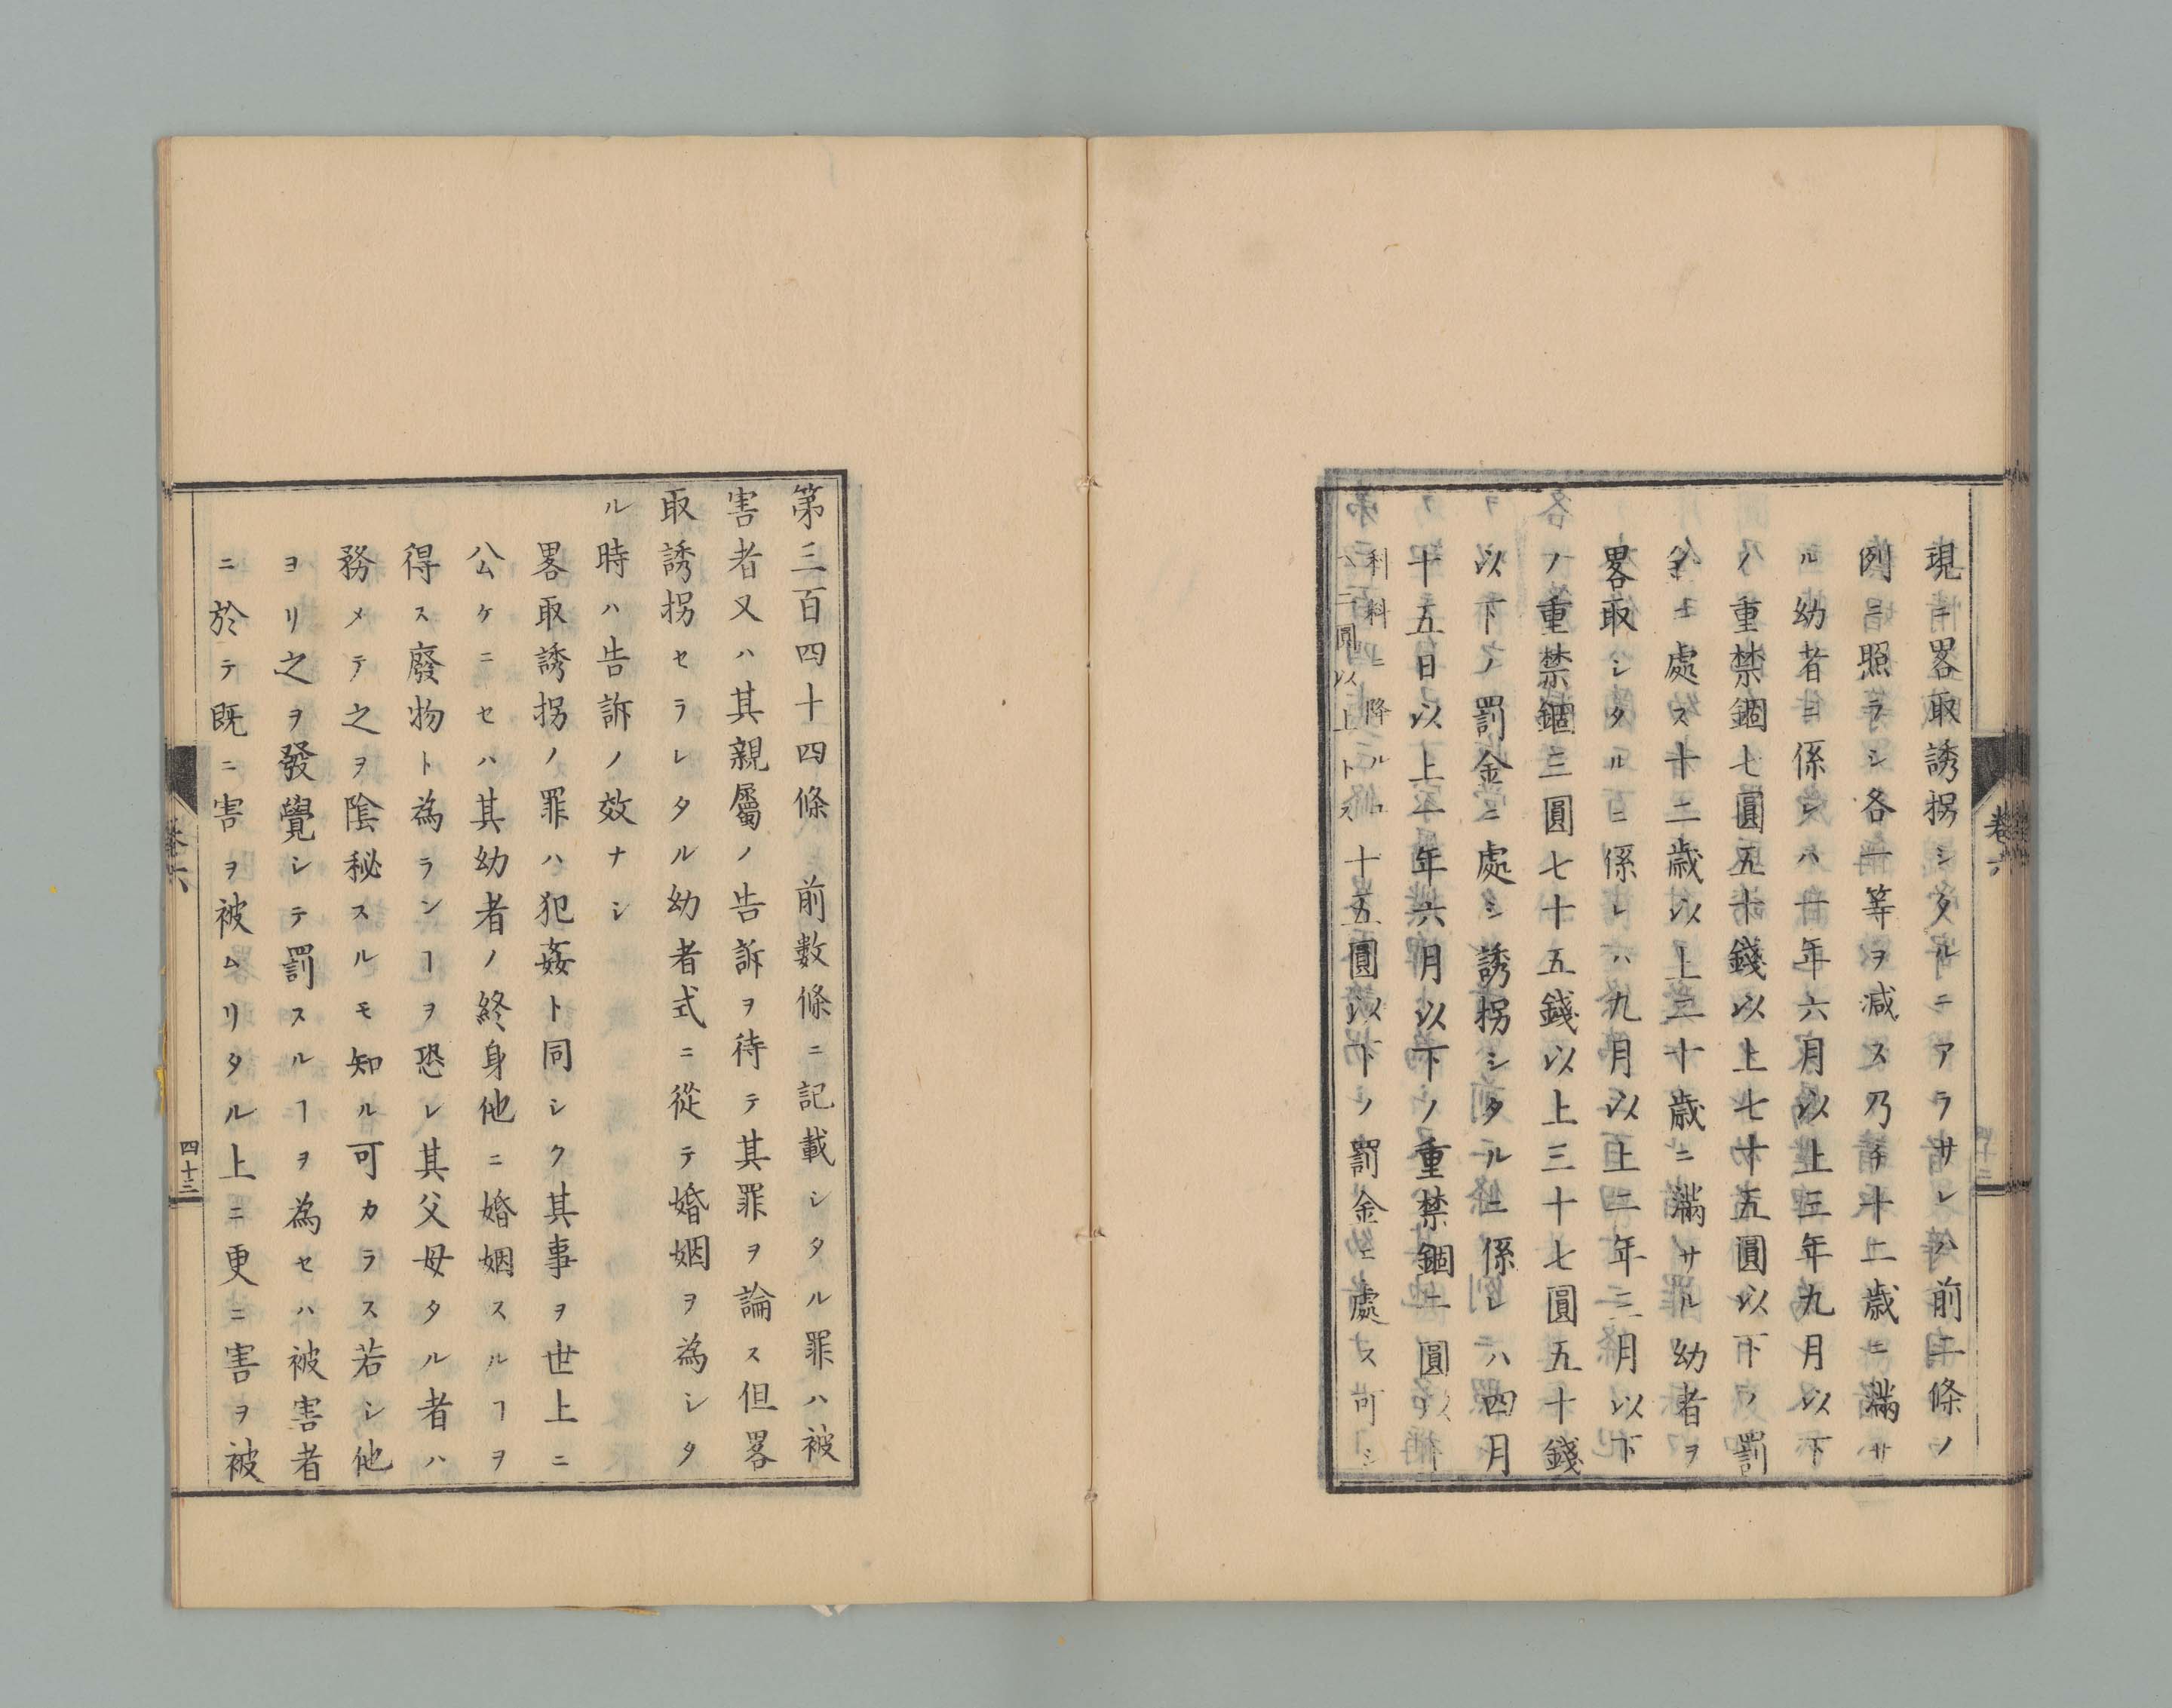 現ニ畧取誘拐シタルニアラサレハ前二條ノ
例ニ照ラシ各一等ヲ減ス乃チ十二歳ニ滿サ
ル幼者ニ係レハ一年六月以上三年九月以下
ノ重禁錮七圓五十錢以上七十五圓以下ノ罰
金ニ處ス十二歳以上二十歳ニ滿サル幼者ヲ
畧取シタルニ係レハ九月以上二年三月以下
ノ重禁錮三圓七十五錢以上三十七圓五十錢
以下ノ罰金ニ處シ誘拐シタルニ係レハ四月
十五日以上一年六月以下ノ重禁錮二圓以下
科料ニ降ルヿ
二圓以上トス
十五圓以下ノ罰金ニ處ス可シ
卷六
第三百四十四條 前數條ニ記載シタル罪ハ被
害者又ハ其親屬ノ告訴ヲ待テ其罪ヲ論ス但畧
取誘拐セラレタル幼者式ニ從テ婚姻ヲ為シタ
ル時ハ告訴ノ效ナシ
畧取誘拐ノ罪ハ犯姦ト同シク其事ヲ世上ニ
公ケニセハ其幼者ノ終身他ニ婚姻スルヿヲ
得ス廢物ト為ランヿヲ恐レ其父母タル者ハ
務メテ之ヲ陰秘スルモ知ル可カラス若シ他
ヨリ之ヲ發覺シテ罰スルヿヲ為セハ被害者
ニ於テ既ニ害ヲ被ムリタル上ニ更ニ害ヲ被
卷六
四十三